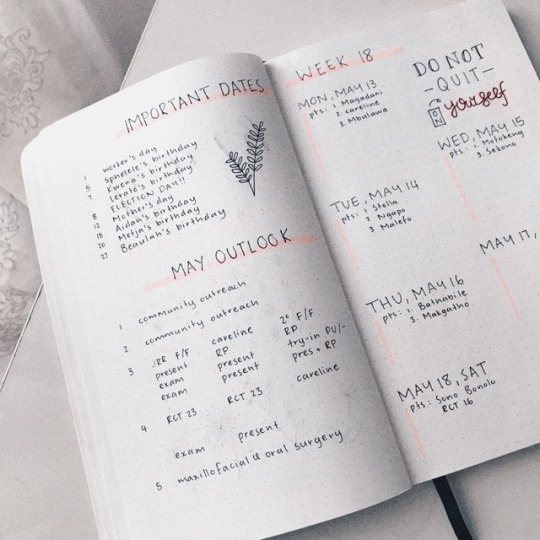 IMPORTANT DATES
1 worker's day
5 Sphelele's birthday
7 Kwena's birthday
Lerato's birthday
8 ELECTION DAY!!
12 Mother's day
18 Aidah's birthday
20 Metja's birthday
27 Beaulah's birthday
MAY OUTLOOK
1 community outreach
2 community outreach
3 JRR F/F careline 2° F/F
present RP RP
exam present try-in PU/-
exam present pres + RP
4 RCT 23 RCT 23 careline
exam present
5 maxillofacial & oral surgery
WEEK 18
MON, MAY 13
pts: 1. Magadani
2. careline
3. Mbulawa
TUE, MAY 14
pts: 1 Stella
2 Ngapo
3 Malefo
THU, MAY 16
pts: 1. Bathabile
3. Makgatho
MAY 18, SAT
pts: Sono Bonolo
RCT 16
DO NOT
-QUIT-
ON yourself
WED, MAY 15
pts: 1. Motokeng
3. Sekono
MAY 17,